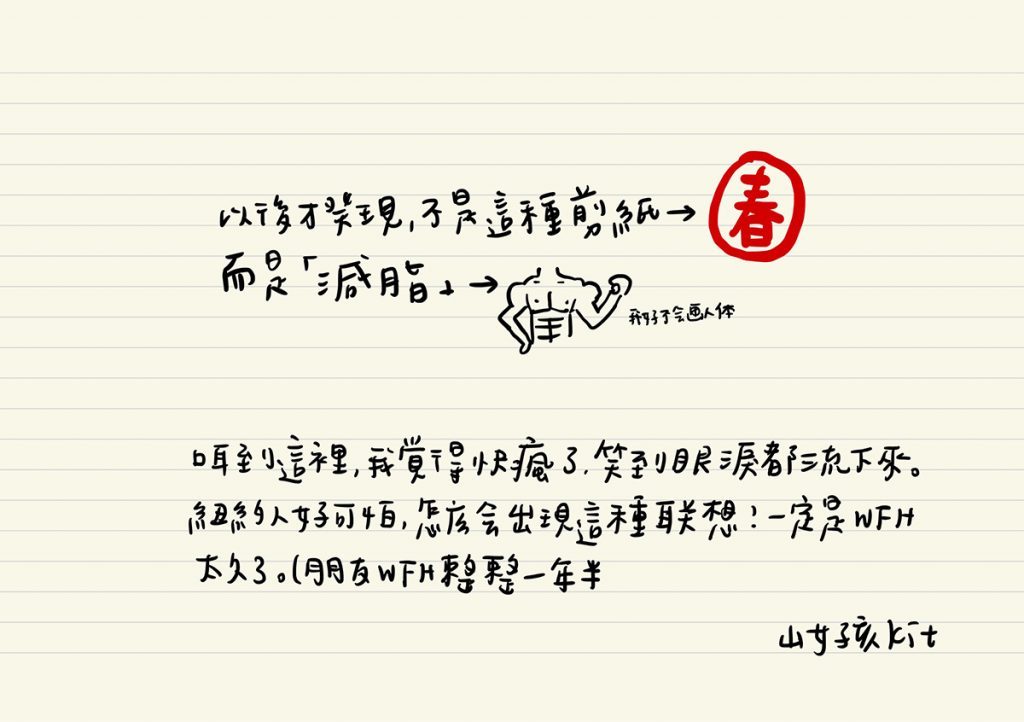 以後才發現,不是這種剪紙→ 春
而是「減脂」→
我好不会画人体
听到這裡,我覺得快瘋了,笑到眼淚都流下來。
紐約人好可怕,怎么会出現這種联想!一定是WFH
太久了。(朋友WFH整整一年半
山女孩kit